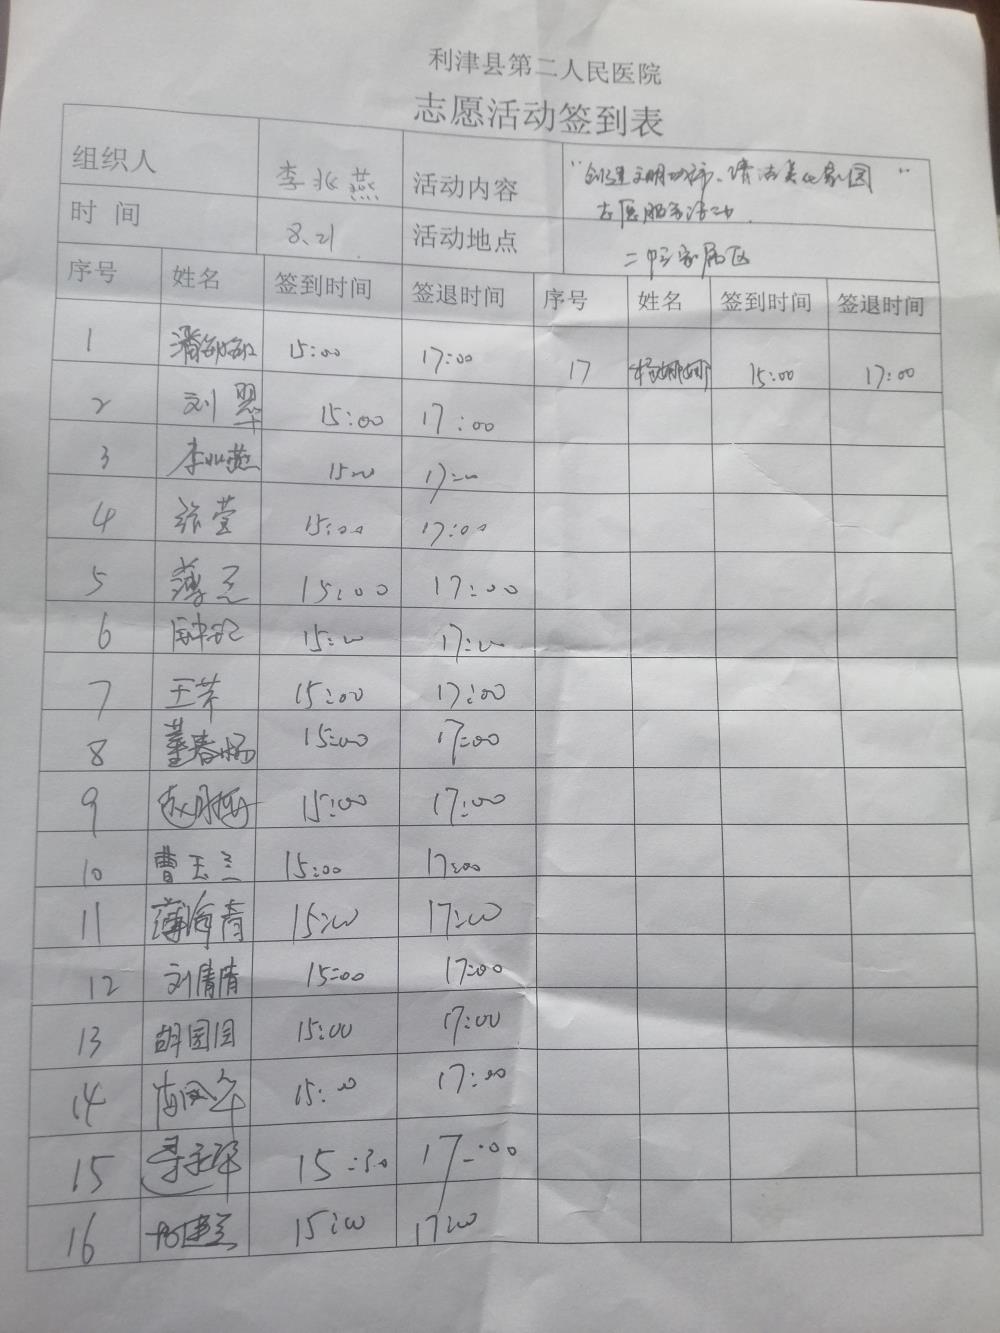 利津县第二人民医院
志愿活动签到表
组织人 李兆燕 活动内容 "创建文明城市、清洁美化家园"
志愿服务活动.
时 间 8.21 活动地点 二中家属区
序号 姓名 签到时间 签退时间 序号 姓名 签到时间 签退时间
1 潘 15:00 17:00 17 杨娜娜 15:00 17:00
2 刘翠 15:00 17:00
3 李兆燕 15:00 17:00
4 张莹 15:00 17:00
5 薄 15:00 17:00
6 15:00 17:00
7 王芹 15:00 17:00
8 董春杨 15:00 17:00
9 赵月 15:00 17:00
10 曹玉兰 15:00 17:00
11 薄海青 15:00 17:00
12 刘倩倩 15:00 17:00
13 胡园园 15:00 17:00
14 15:00 17:00
15 15:30 17:00
16 15:00 17:00